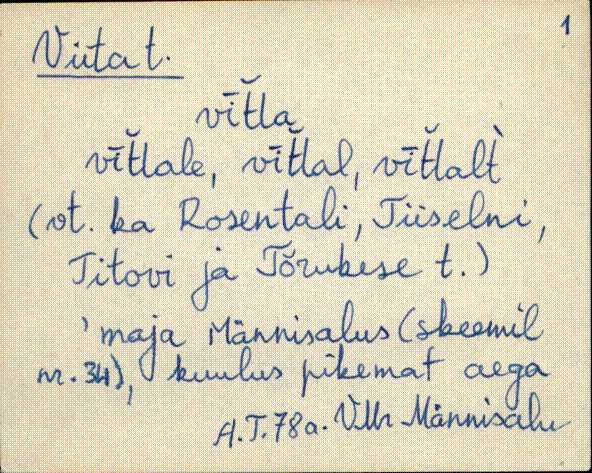 1
Viita t.
vīt̆la
vīt̆lale, vīt̆lal, vīt̆lalt̀
(vt. ka Rosentali, Tiiselni,
Titovi ja Tõrukese t.)
'maja Männisalus (skeemil
nr. 34), kuulus pikemat aega
A.T. 78a. VMr Männisalu